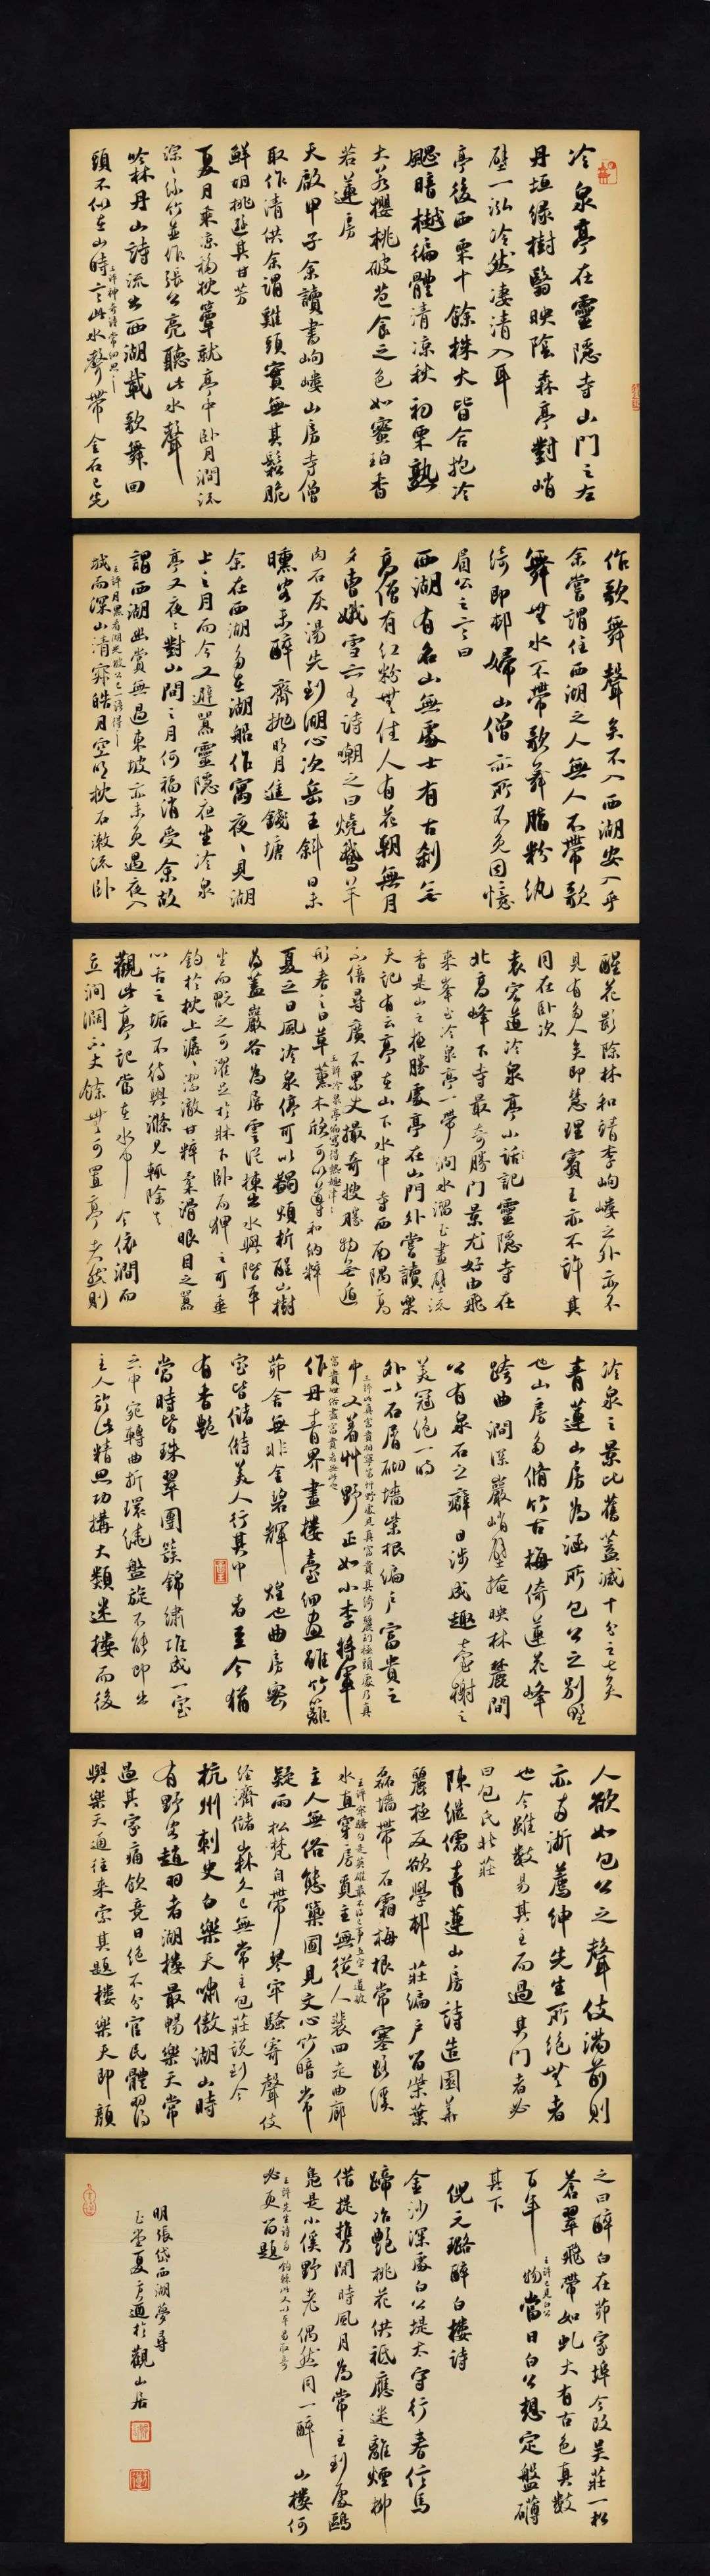 冷泉亭在靈隱寺山門之左
丹垣綠樹翳映陰森亭對峭
壁一泓泠然凄清入耳
亭後西栗十餘株大皆合抱冷
颸暗樾徧體清凉秋初栗熟
大若櫻桃破苞食之色如蜜珀香
若蓮房
天啟甲子余讀書岣嶁山房寺僧
取作清供余謂雞頭實無其鬆脆
鮮胡桃遜其甘芳
夏月乘凉移枕簟就亭中卧月澗流
淙淙絲竹並作張公亮聽此水聲
吟林丹山詩流出西湖載歌舞回
頭不似在山時言此水聲帶金石已先
作歌舞聲矣不入西湖安入乎
余嘗謂住西湖之人無人不帶歌
舞無水不帶歌舞脂粉紈
綺即邨婦山僧亦所不免因憶
眉公之言曰
西湖有名山無處士有古剎無
高僧有紅粉無佳人有花朝無月
夕曹娥雪亦有詩嘲之曰燒鵝羊
肉石灰湯先到湖心次岳王斜日未
曛客未醉齊拋明月進錢塘
余在西湖多在湖船作寓夜夜見湖
上之月而今又避囂靈隱夜坐冷泉
亭又夜夜對山間之月何福消受余故
謂西湖幽賞無過東坡亦未免遇夜入
王評月黑看湖光坡公已一語得之
城而深山清寂皓月空明枕石漱流卧
醒花影除林和靖李岣嶁之外亦不
見有多人矣即慧理賓王亦不許其
同在卧次
袁宏道冷泉亭小誌記靈隱寺在
北高峰下寺最奇勝門景尤好由飛
來峰至冷泉亭一帶澗水溜玉畫壁流
香是山之極勝處亭在山門外嘗讀樂
天記有云亭在山下水中寺西南隅高
不倍尋廣不累丈撮奇搜勝物無遁
形春之日草薰木欣可以導和納粹
夏之日風冷泉停可以蠲煩析酲山樹
為蓋巖谷為屏雲從棟出水與階平
坐而翫之可濯足於牀下卧而狎之可垂
釣於枕上潺湲潔澈甘粹柔滑眼目之囂
心舌之垢不待盥滌見輒除去
觀此亭記當在水中今依澗而
立澗濶不丈餘無可置亭者然則
冷泉之景比舊蓋減十分之七矣
青蓮山房為涵所包公之別墅
也山房多脩竹古梅倚蓮花峰
跨曲澗深巖峭壁掩映林麓間
公有泉石之癖日涉成趣臺榭之
美冠絕一時
外以石屑砌墻柴根編戶富貴之
中又着艸野正如小李將軍
作丹青界畫樓臺細畫雖竹籬
茆舍無非金碧輝煌也曲房密
室皆儲偫美人行其中者至今猶
有香艷
當時皆珠翠團簇錦繡堆成一室
之中宛轉曲折環繞盤旋不能即出
主人於此精思巧搆大類迷樓而後
人欲如包公之聲伎滿前則
亦兩浙薦紳先生所絕無者
也今雖數易其主而過其門者必
曰包氏北莊
陳繼儒青蓮山房詩造園華
麗極反欲學邨莊編戶留柴葉
磊墻帶石霜梅根常塞路溪
水直穿房覓主無從入裴回走曲廊
主人無俗態築圃見文心竹暗常
疑雨松梵自帶琴牢騷寄聲伎
經濟儲山森久已無常主包莊說到今
杭州刺史白樂天嘯傲湖山時
有野客趙羽者湖樓最暢樂天常
過其家痛飲竟日絕不分官民體羽得
與樂天通往來索其題樓樂天即顏
之曰醉白在茆家埠今改吳莊一松
蒼翠飛帶如虬大有古色真數
百年物當日白公想定盤礴
其下
倪元璐醉白樓詩
金沙深處白公堤太守行春信馬
蹄冶艷桃花供祗應迷離煙柳
借提攜閒時風月為常主到處鷗
鳧是小傒野老偶然同一醉山樓何
必更留題
明張岱西湖夢尋